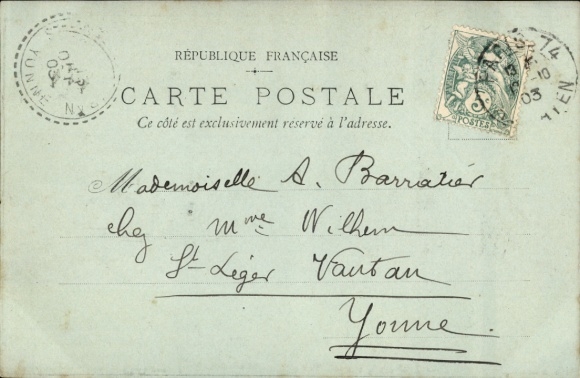 RÉPUBLIQUE FRANÇAISE
CARTE POSTALE
Ce côté est exclusivement réservé à l'adresse.
Mademoiselle A. Barratier
chez Mme Wilhem
St-Léger Vauban
Yonne.
POSTES
74
03
YONNE